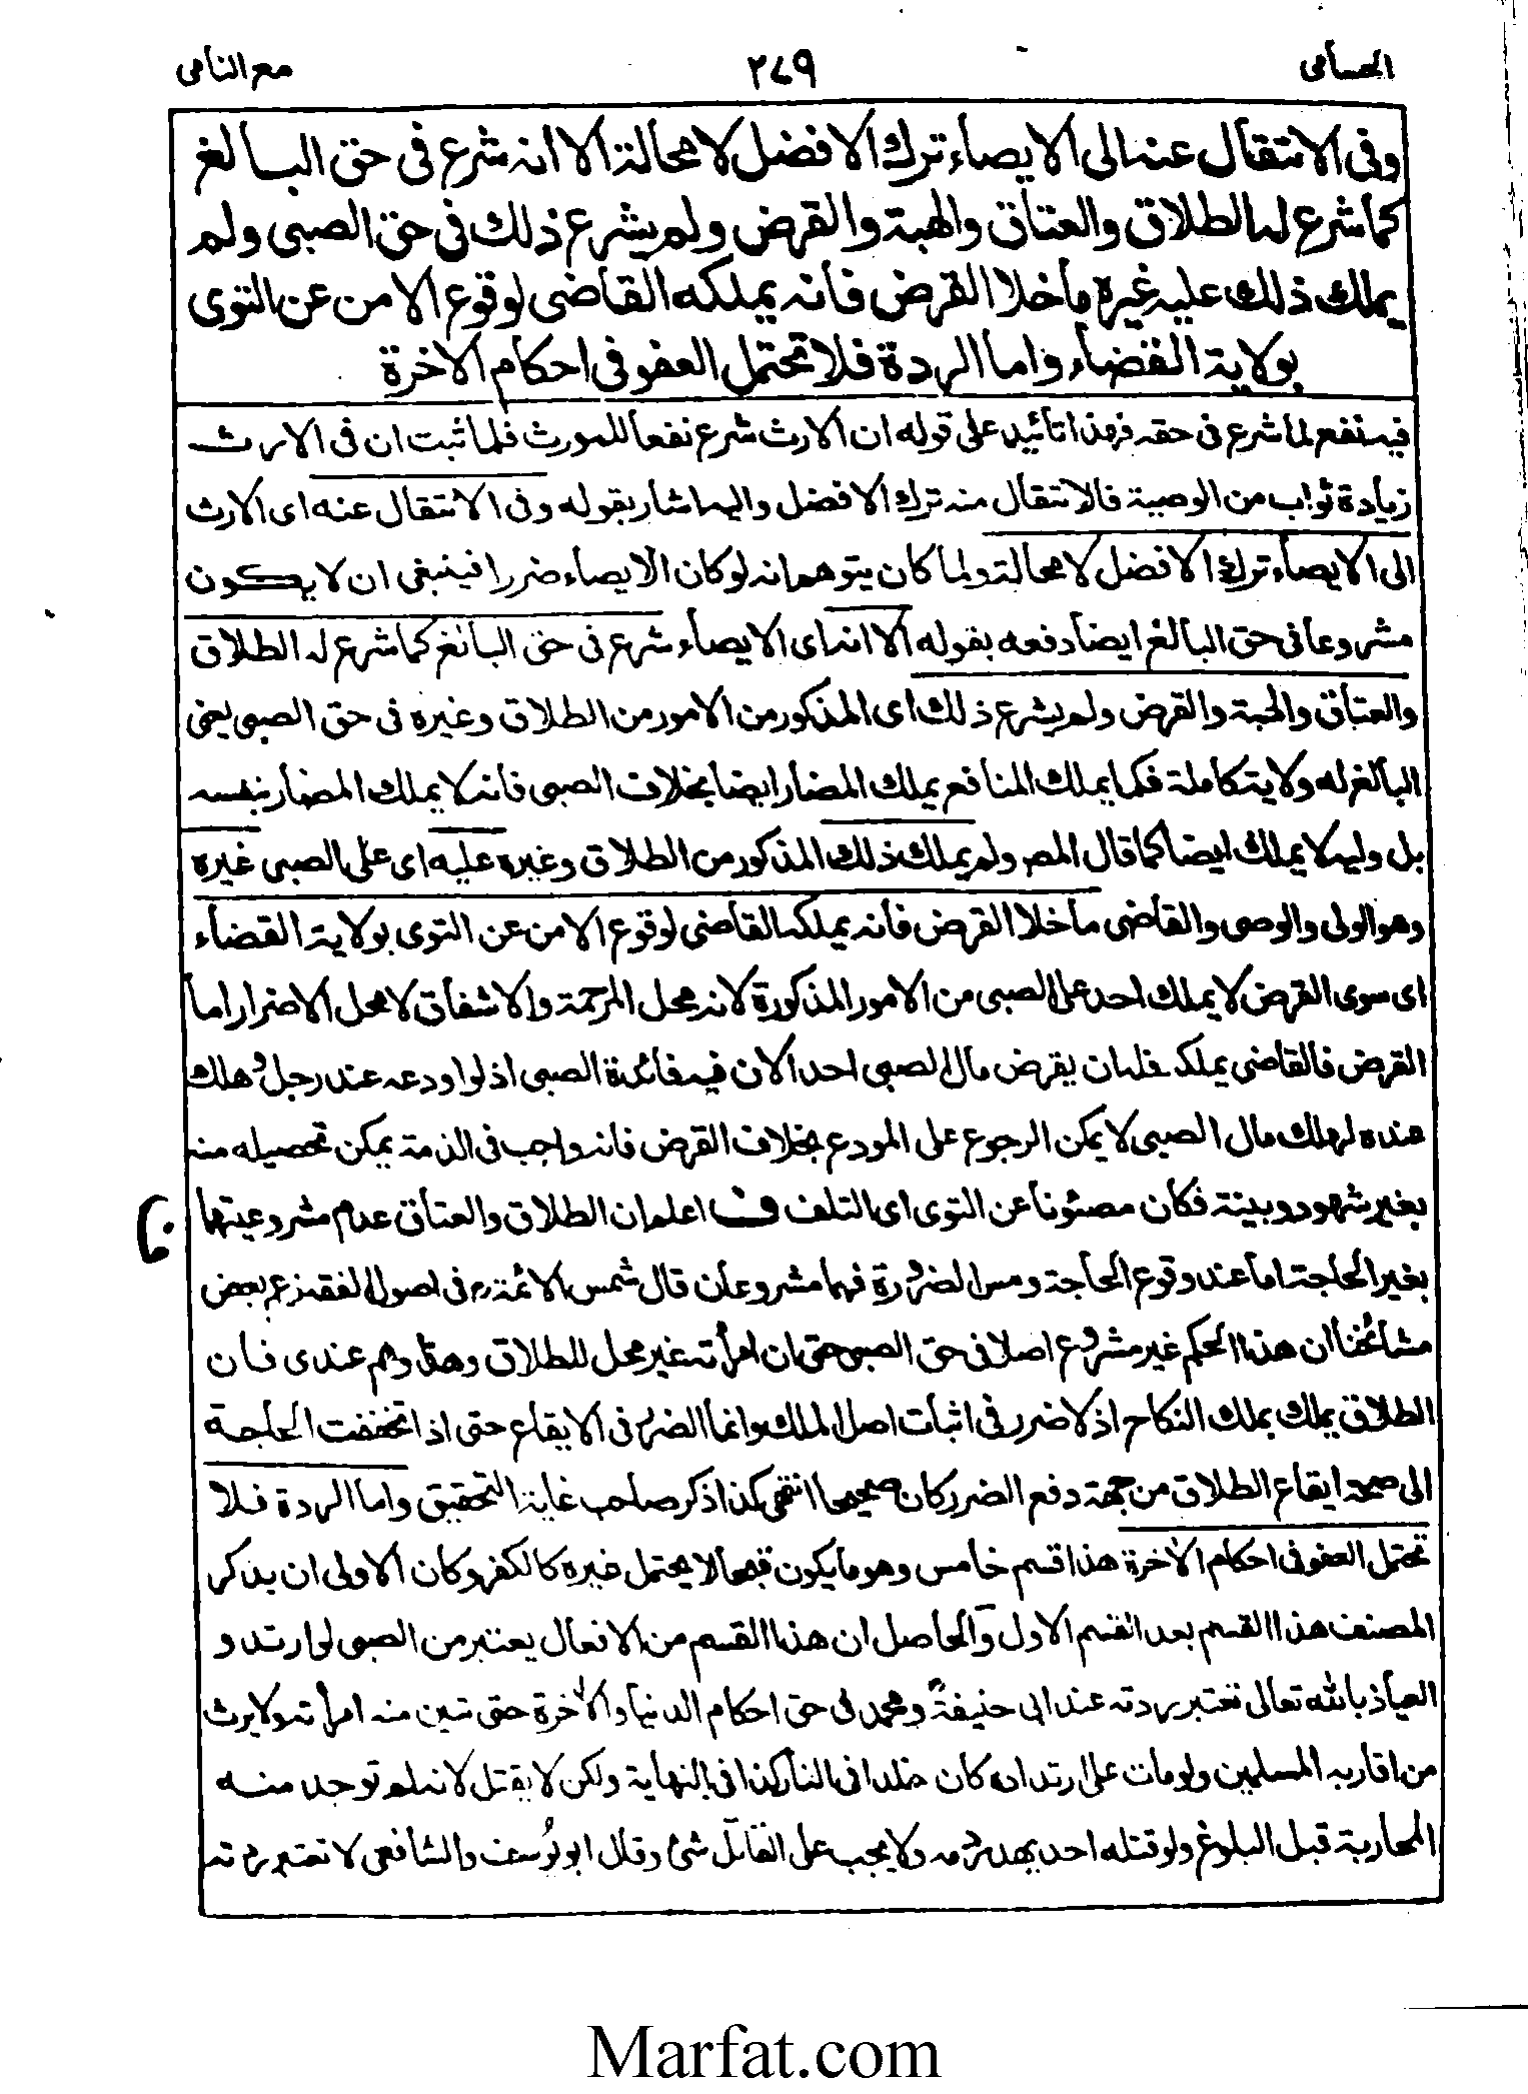 الحسامى ٢٧٩ مع النامى
وفى الانتقال عنه الى الايصاء ترك الافضل لا محالة الا انه شرع فى حق البالغ
كما شرع له الطلاق والعتاق والهبة والقرض ولم يشرع ذلك فى حق الصبى ولم
يملك ذلك عليه غيره ما خلا القرض فانه يملكه القاضى لوقوع الامن عن التوى
بولاية القضاء واما الردة فلا تحتمل العفو فى احكام الاخرة
فيه نفع لما شرع فى حقه فهذا تائيد على قوله ان الارث شرع نفعا للمورث فلما ثبت ان فى الارث
زيادة ثواب من الوصية فالانتقال منه ترك الافضل واليه اشار بقوله وفى الانتقال عنه اى الارث
الى الايصاء ترك الافضل لا محالة ولما كان يتوهم انه لو كان الايصاء ضررا فينبغى ان لا يكون
مشروعا فى حق البالغ ايضا دفعه بقوله الا انه اى الايصاء شرع فى حق البالغ كما شرع له الطلاق
والعتاق والهبة والقرض ولم يشرع ذلك اى المذكور من الامور من الطلاق وغيره فى حق الصبى يعنى
البالغ له ولاية كاملة فكما يملك المنافع يملك المضار ايضا بخلاف الصبى فانه لا يملك المضار بنفسه
بل وليه لا يملك ايضا كما قال المص ولم يملك ذلك المذكور من الطلاق وغيره عليه اى على الصبى غيره
وهو الولى والوصى والقاضى ما خلا القرض فانه يملكه القاضى لوقوع الامن عن التوى بولاية القضاء
اى سوى القرض لا يملك احد على الصبى من الامور المذكورة لانه محل المرحمة والاشفاق لا محل الاضرار اما
القرض فالقاضى يملكه فله ان يقرض مال الصبى احد الان فيه فائدة الصبى اذ لو اودعه عند رجل وهلك
عنده لهلك مال الصبى لا يمكن الرجوع على المودع بخلاف القرض فانه واجب فى الذمة يمكن تحصيله منه
بغير شهود وبينة فكان مصئونا عن التوى اى التلف ف اعلم ان الطلاق والعتاق عدم مشروعيتها
بغير الحاجة اما عند وقوع الحاجة ومس الضرورة فهما مشروعان قال شمس الائمة رح فى اصول الفقه زعم بعض
مشائخنا ان هذا الحكم غير مشروع اصلا فى حق الصبى حتى ان امرأته غير محل للطلاق وهذا وهم عندى فان
الطلاق يملك بملك النكاح اذ لا ضرر فى اثبات اصل الملك وانما الضرر فى الايقاع حتى اذا تحققت الحاجة
الى صحة ايقاع الطلاق من جهة دفع الضرر كان صحيحا انتهى كذا ذكر صاحب غاية التحقيق واما الردة فلا
تحتمل العفو فى احكام الاخرة هذا قسم خامس وهو ما يكون قبيحا لا يحتمل غيره كالكفر وكان الاولى ان يذكر
المصنف هذا القسم بعد القسم الاول والحاصل ان هذا القسم من الافعال يعتبر من الصبى لو ارتد و
العياذ بالله تعالى تعتبر ردته عند ابى حنيفة ومحمد فى حق احكام الدنيا والاخرة حتى تبين منه امرأته ولا يرث
من اقاربه المسلمين ولو مات على ارتداده كان مخلدا فى النار كذا فى النهاية ولكن لا يقتل لانه لم توجد منه
المحاربة قبل البلوغ ولو قتله احد يهدر دمه ولا يجب على القاتل شئ وقال ابو يوسف والشافعى لا تعتبر ردته
Marfat.com